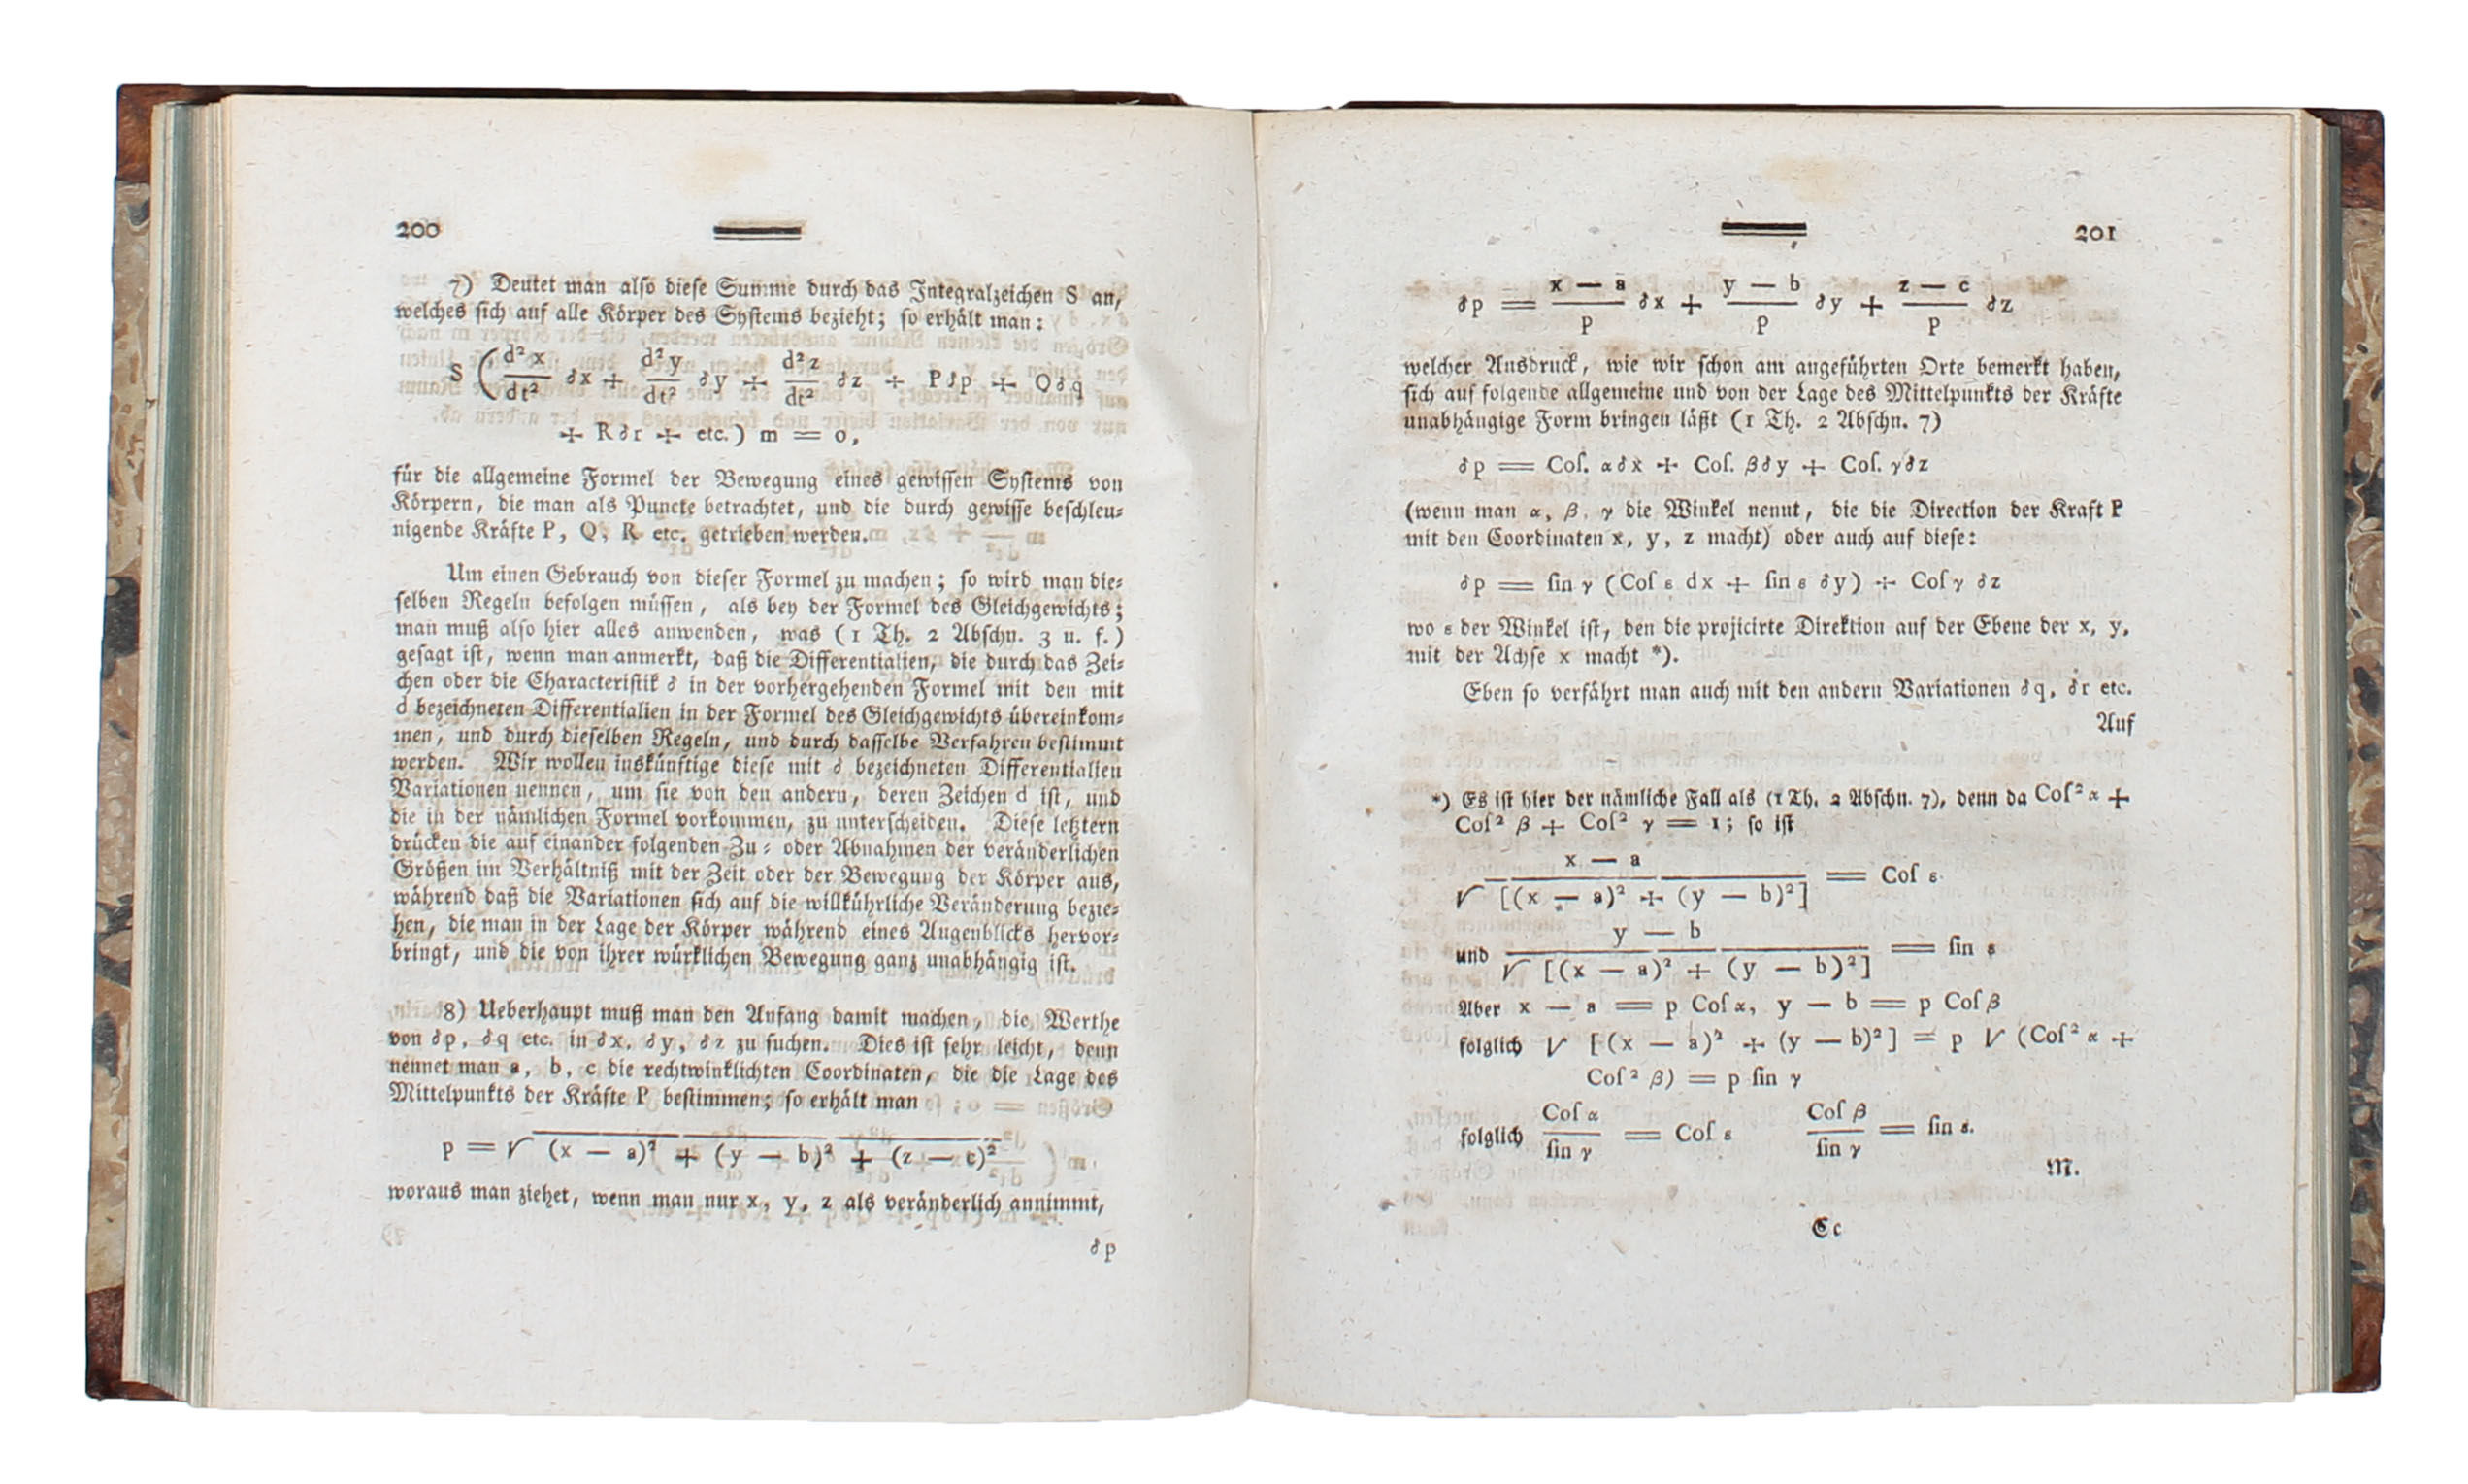 200
7) Deutet man alſo dieſe Summe durch das Integralzeichen S an,
welches ſich auf alle Körper des Syſtems bezieht; ſo erhält man:
S (d² x/dt² δx + d² y/dt² δy + d² z/dt² δz + Pδp + Qδq
+ Rδr + etc.) m = 0,
für die allgemeine Formel der Bewegung eines gewiſſen Syſtems von
Körpern, die man als Puncte betrachtet, und die durch gewiſſe beſchleu⸗
nigende Kräfte P, Q, R etc. getrieben werden.
Um einen Gebrauch von dieſer Formel zu machen; ſo wird man die⸗
ſelben Regeln befolgen müſſen, als bey der Formel des Gleichgewichts;
man muß alſo hier alles anwenden, was (1 Th. 2 Abſchn. 3 u. f.)
geſagt iſt, wenn man anmerkt, daß die Differentialien, die durch das Zei⸗
chen oder die Characteriſtik δ in der vorhergehenden Formel mit den mit
d bezeichneten Differentialien in der Formel des Gleichgewichts übereinkom⸗
men, und durch dieſelben Regeln, und durch daſſelbe Verfahren beſtimmt
werden. Wir wollen inskünftige dieſe mit δ bezeichneten Differentialien
Variationen nennen, um ſie von den andern, deren Zeichen d iſt, und
die in der nämlichen Formel vorkommen, zu unterſcheiden. Dieſe letztern
drücken die auf einander folgenden Zu⸗ oder Abnahmen der veränderlichen
Größen im Verhältniß mit der Zeit oder der Bewegung der Körper aus,
während daß die Variationen ſich auf die willkührliche Veränderung bezie⸗
hen, die man in der Lage der Körper während eines Augenblicks hervor⸗
bringt, und die von ihrer würklichen Bewegung ganz unabhängig iſt.
8) Ueberhaupt muß man den Anfang damit machen, die Werthe
von δp, δq etc. in δx, δy, δz zu ſuchen. Dies iſt ſehr leicht, denn
nennet man a, b, c die rechtwinklichten Coordinaten, die die Lage des
Mittelpunkts der Kräfte P beſtimmen; ſo erhält man
p = √ (x — a)² + (y — b)² + (z — c)²
woraus man ziehet, wenn man nur x, y, z als veränderlich annimmt,
δp
201
δp = x — a/p δx + y — b/p δy + z — c/p δz
welcher Ausdruck, wie wir ſchon am angeführten Orte bemerkt haben,
ſich auf folgende allgemeine und von der Lage des Mittelpunkts der Kräfte
unabhängige Form bringen läßt (1 Th. 2 Abſchn. 7)
δp = Coſ. αδx + Coſ. βδy + Coſ. γδz
(wenn man α, β, γ die Winkel nennt, die die Direction der Kraft P
mit den Coordinaten x, y, z macht) oder auch auf dieſe:
δp = ſin γ (Coſ ε dx + ſin ε δy) + Coſ γ δz
wo ε der Winkel iſt, den die projicirte Direktion auf der Ebene der x, y,
mit der Achſe x macht *).
Eben ſo verfährt man auch mit den andern Variationen δq, δr etc.
Auf
*) Es iſt hier der nämliche Fall als (1 Th. 2 Abſchn. 7), denn da Coſ² α +
Coſ² β + Coſ² γ = 1; ſo iſt
x — a/√ [(x — a)² + (y — b)²] = Coſ ε
und y — b/√ [(x — a)² + (y — b)²] = ſin ε
Aber x — a = p Coſ α, y — b = p Coſ β
folglich √ [(x — a)² + (y — b)²] = p √ (Coſ² α +
Coſ² β) = p ſin γ
folglich Coſ α/ſin γ = Coſ ε Coſ β/ſin γ = ſin ε.
M.
Cc